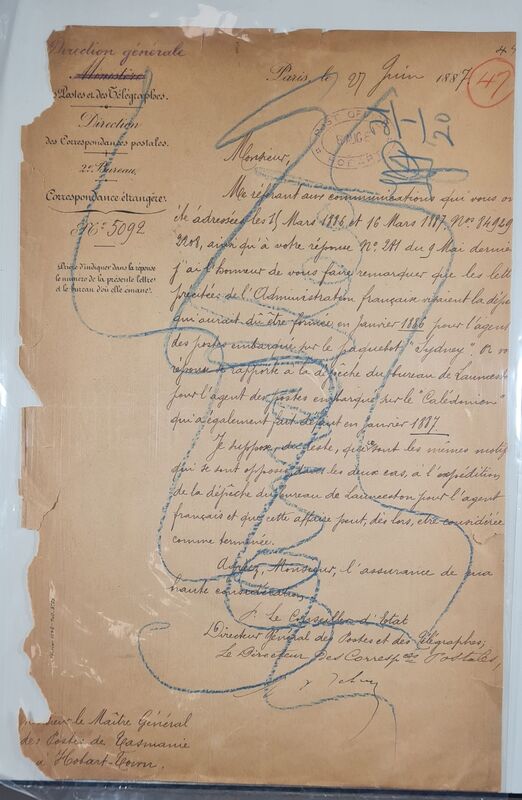 Direction générale
Ministère
Postes et des Télégraphes.
Direction
des Correspondances postales.
2e Bureau.
Correspondance étrangère.
No 5092
Prière d'indiquer dans la réponse
le numéro de la présente lettre
et le bureau d'où elle émane.
Paris, le 27 Juin 1887
47
1
20
POST OFF
AUG
Monsieur,
Me référant aux communications qui vous on
été adressées les 15 Mars 1886 et 16 Mars 1887, Nos 84949
2208, ainsi qu'à votre réponse No 241 du 9 Mai dernier
j'ai l'honneur de vous faire remarquer que les lett
précitées de l'Administration française visaient la dépê
qui aurait dû être formée en Janvier 1886 pour l'agent
des postes embarqué sur le paquebot "Sydney". Or vo
réponse se rapporte à la dépêche du bureau de Launcesto
pour l'agent des postes embarqué sur le "Calédonien"
qui a également fait défaut en janvier 1887.
Je suppose, du reste, que ce sont les mêmes motif
qui se sont opposés, dans les deux cas, à l'expédition
de la dépêche du bureau de Launceston pour l'agent
français et que cette affaire peut, dès lors, être considérée
comme terminée.
Agréez, Monsieur, l'assurance de ma
haute considération.
P. Le Conseiller d'Etat
Directeur Général des Postes et des Télégraphes;
Le Directeur des Correspces Postales,
Monsieur le Maître Général
des Postes de Tasmanie
à Hobart-Town.